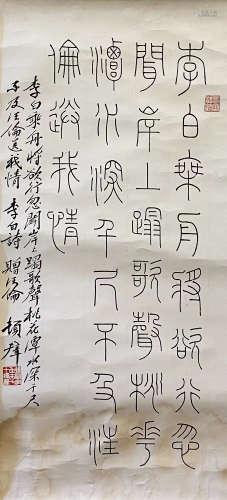 李白乘舟將欲行忽
聞岸上蹋歌聲桃花
潭水深千尺不及汪
倫送我情
李白乘舟將欲行忽聞岸上蹋歌聲桃花潭水深千尺
不及汪倫送我情 李白詩 贈汪倫